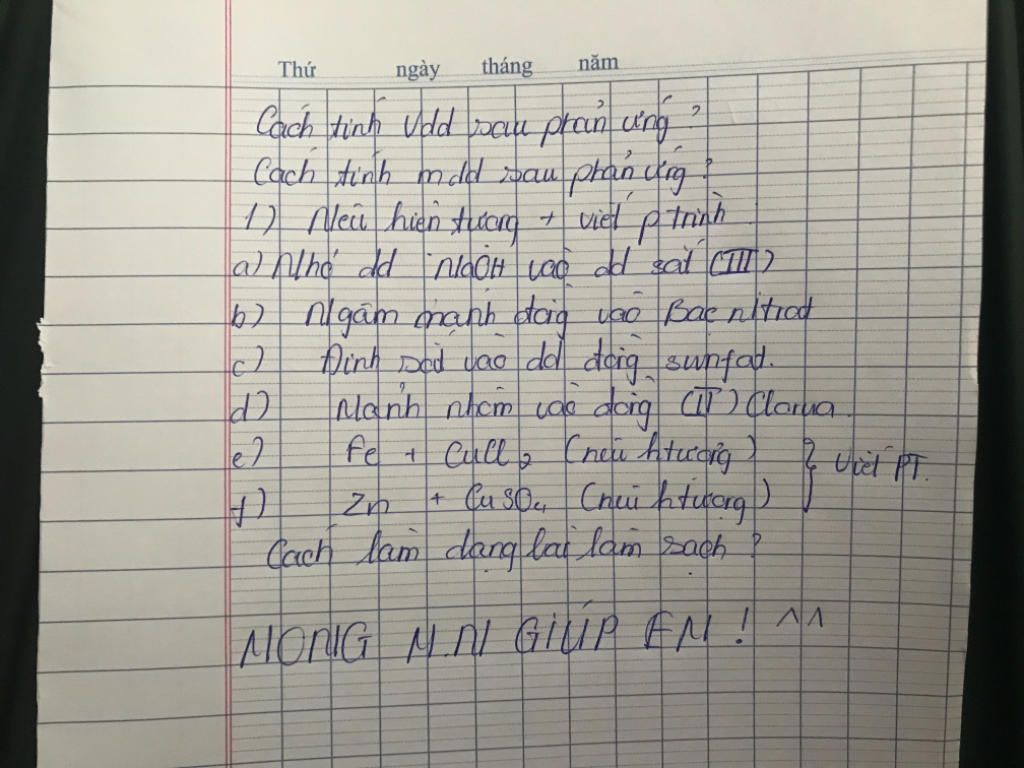 Thứ ngày tháng năm
Cách tính Vdd sau phản ứng ?
Cách tính mdd sau phản ứng ?
1) Nêu hiện tượng + viết ptrình
a) Nhỏ dd NaOH vào dd sắt (III)
b) Ngâm mảnh đồng vào Bạc nitrat
c) Đinh sắt vào dd đồng sunfat.
d) Mảnh nhôm vào đồng (II) Clorua
e) Fe + CuCl2 (nêu htượng) } Viết PT.
f) Zn + CuSO4 (nêu htượng)
Cách làm dạng bài làm sạch ?
MONG M.N GIÚP EM ! ^^